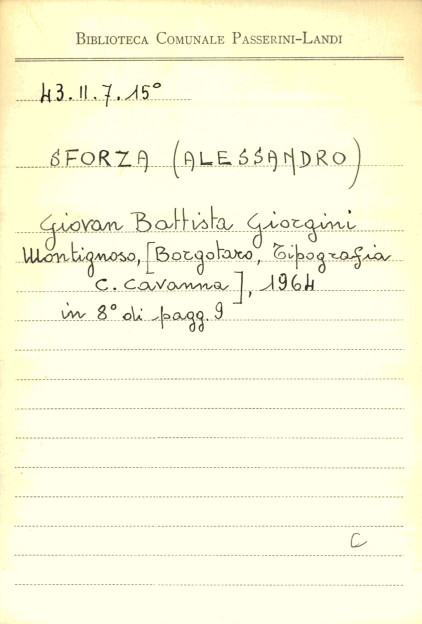 BIBLIOTECA COMUNALE PASSERINI-LANDI
43.II.7.15°
SFORZA (ALESSANDRO)
Giovan Battista Giorgini
Montignoso, [Borgotaro, Tipografia
C. Cavanna], 1964
in 8° di pagg. 9
C